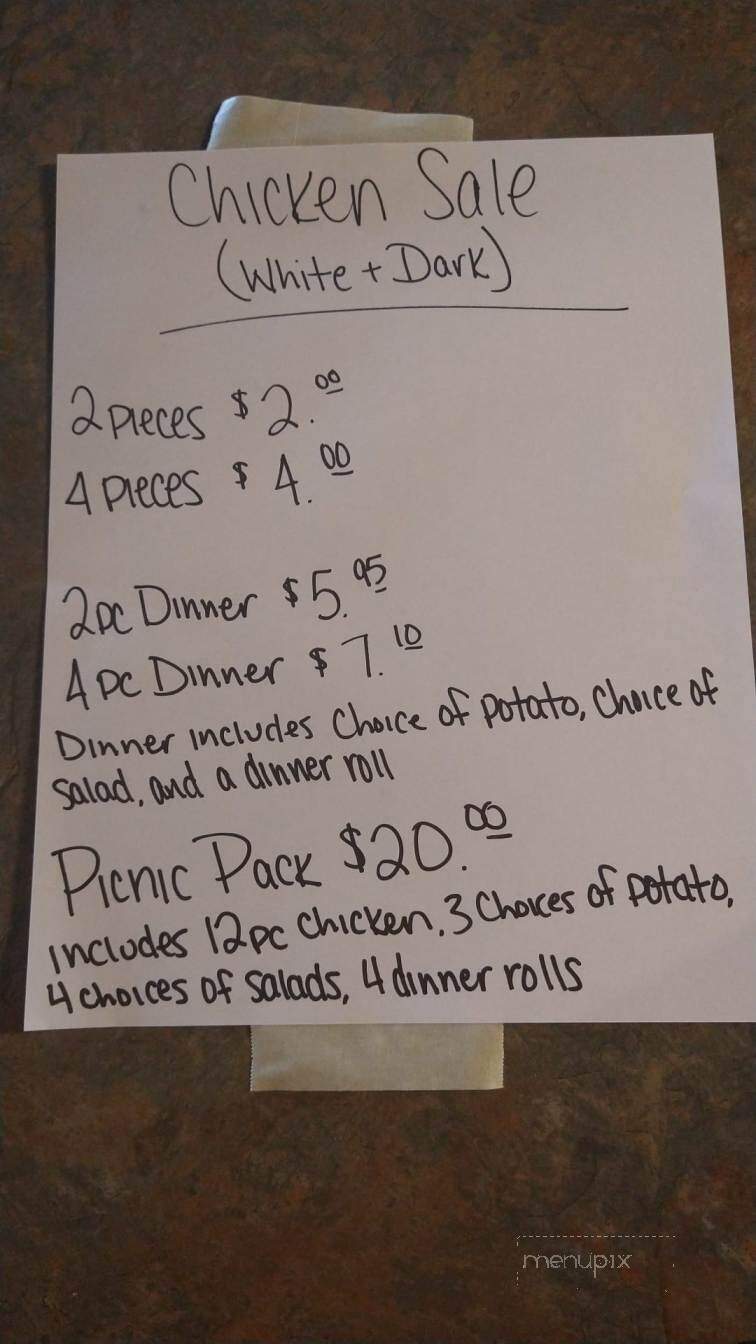 Chicken Sale
(White + Dark)
2 pieces $2.00
4 pieces $4.00
2pc Dinner $5.95
4 pc Dinner $7.10
Dinner includes Choice of potato, Choice of
salad, and a dinner roll
Picnic Pack $20.00
includes 12pc chicken, 3 Choices of potato,
4 choices of salads, 4 dinner rolls
menupix